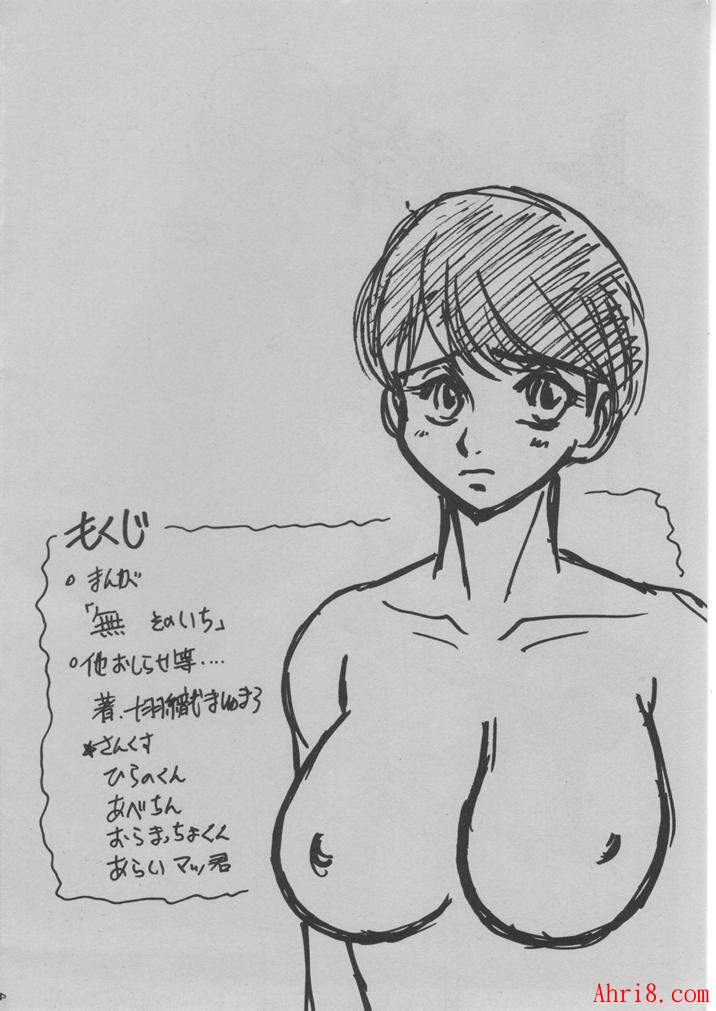 もくじ
○ まんが
「無 そのいち」
○ 他おしらせ等‥‥
著. 羽織ましゅまろ
*さんくす
ひらのくん
あべちん
むらまっちょくん
あらいマッ君
4
Ahri8.com